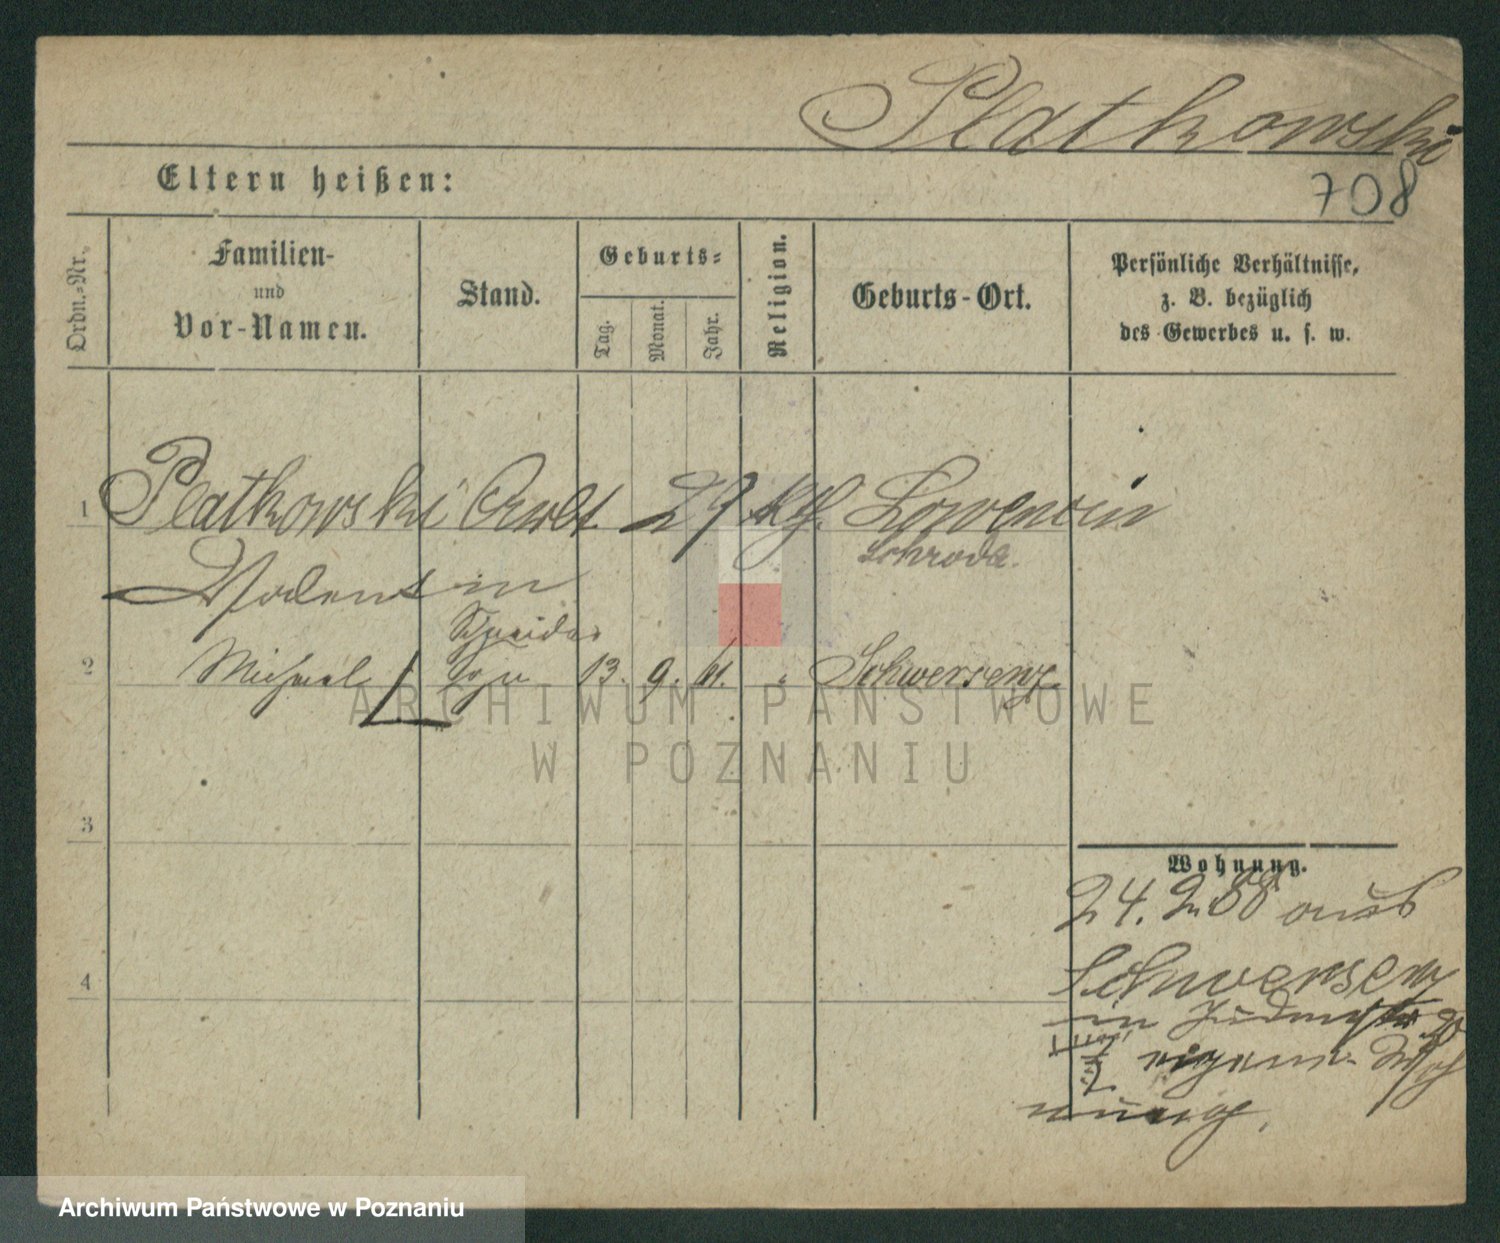 Platkowski
Eltern heißen:
708
Ordn.-Nr.
Familien-
und
Vor-Namen.
Stand.
Geburts-
Tag.
Monat.
Jahr.
Religion.
Geburts-Ort.
Persönliche Verhältnisse,
z. B. bezüglich
des Gewerbes u. s. w.
1 Platkowski 27 kth.
Schroda.
2 Michael Schneider
13. 9. 61. " Schwersenz
3
4
Wohnung.
24. 2. 88 aus
Schwersenz
in
eigene Woh
nung.
ARCHIWUM PAŃSTWOWE
W POZNANIU
Archiwum Państwowe w Poznaniu